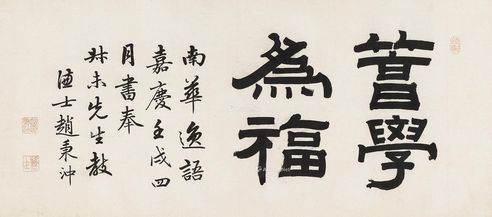 學
為福
南華逸語
嘉慶壬戌四
月書奉
叔未先生教
謙士趙秉沖